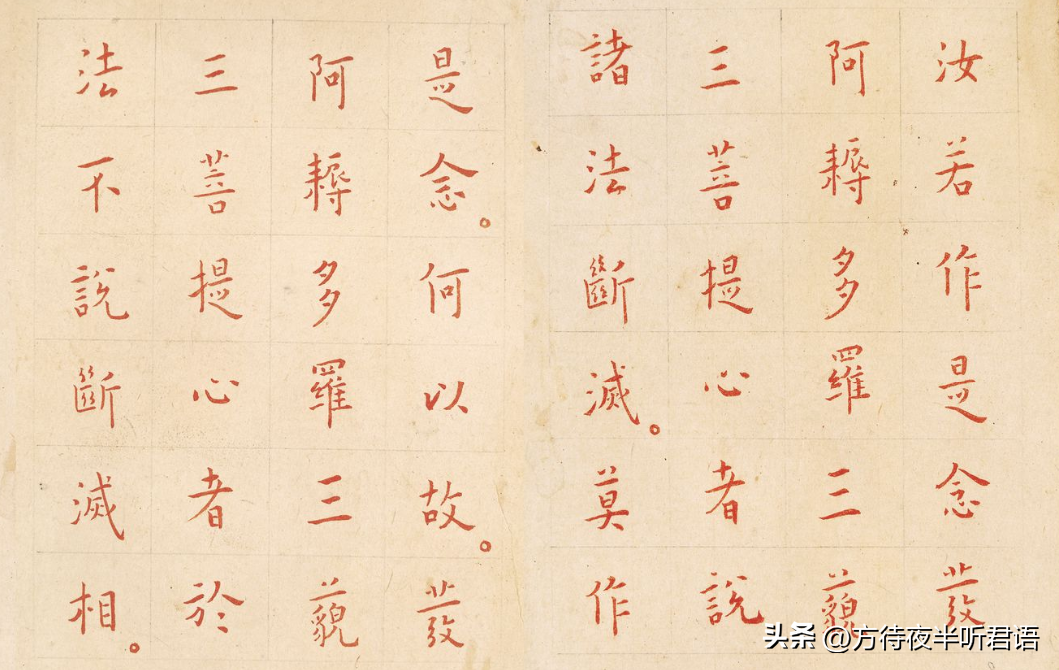 汝若作是念發
阿耨多羅三藐
三菩提心者說
諸法斷滅。莫作
是念。何以故。發
阿耨多羅三藐
三菩提心者於
法不說斷滅相。
头条 @方待夜半听君语